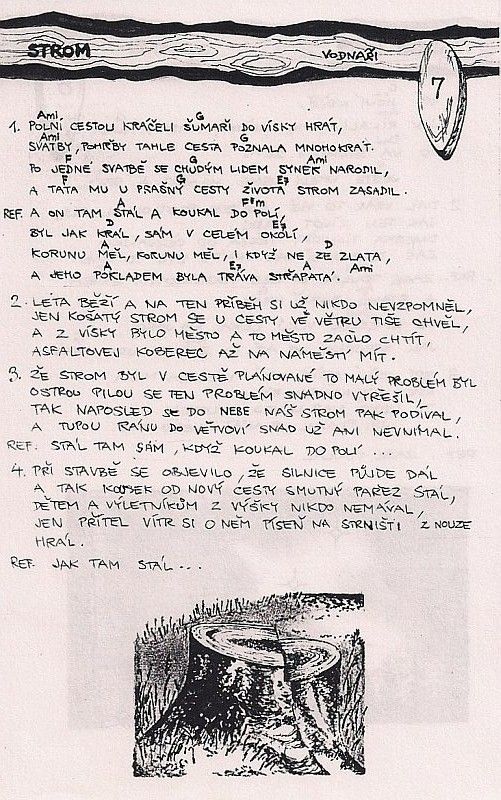 STROM
VODNÁŘI
7
Ami G
1. POLNÍ CESTOU KRÁČELI ŠUMAŘI DO VÍSKY HRÁT,
Ami G
SVATBY, POHŘBY TAHLE CESTA POZNALA MNOHOKRÁT.
F G Ami
PO JEDNÉ SVATBĚ SE CHUDÝM LIDEM SYNEK NARODIL,
F G E7
A TÁTA MU U PRAŠNÝ CESTY ŽIVOTA STROM ZASADIL.
A F#m
REF. A ON TAM STÁL A KOUKAL DO POLÍ,
D E7
BYL JAK KRÁL, SÁM V CELÉM OKOLÍ,
A D
KORUNU MĚL, KORUNU MĚL, I KDYŽ NE ZE ZLATA,
A E7 A Ami
A JEHO POKLADEM BYLA TRÁVA STŘAPATÁ.
2. LÉTA BĚŽÍ A NA TEN PŘÍBĚH SI UŽ NIKDO NEVZPOMNĚL,
JEN KOŠATÝ STROM SE U CESTY VE VĚTRU TIŠE CHVĚL,
A Z VÍSKY BYLO MĚSTO A TO MĚSTO ZAČLO CHTÍT,
ASFALTOVEJ KOBEREC AŽ NA NÁMĚSTÍ MÍT.
3. ŽE STROM BYL V CESTĚ PLÁNOVANÉ TO MALÝ PROBLÉM BYL
OSTROU PILOU SE TEN PROBLÉM SNADNO VYŘEŠIL,
TAK NAPOSLED SE DO NEBE NÁŠ STROM PAK PODÍVAL,
A TUPOU RÁNU DO VĚTVOVÍ SNAD UŽ ANI NEVNÍMAL.
REF. STÁL TAM SÁM, KDYŽ KOUKAL DO POLÍ ...
4. PŘI STAVBĚ SE OBJEVILO, ŽE SILNICE PŮJDE DÁL
A TAK KOUSEK OD NOVÝ CESTY SMUTNÝ PAŘEZ STÁL,
DĚTEM A VÝLETNÍKŮM Z VÝŠKY NIKDO NEMÁVAL,
JEN PŘÍTEL VÍTR SI O NĚM PÍSEŇ NA STRNIŠTI Z NOUZE
HRÁL.
REF. JAK TAM STÁL ...